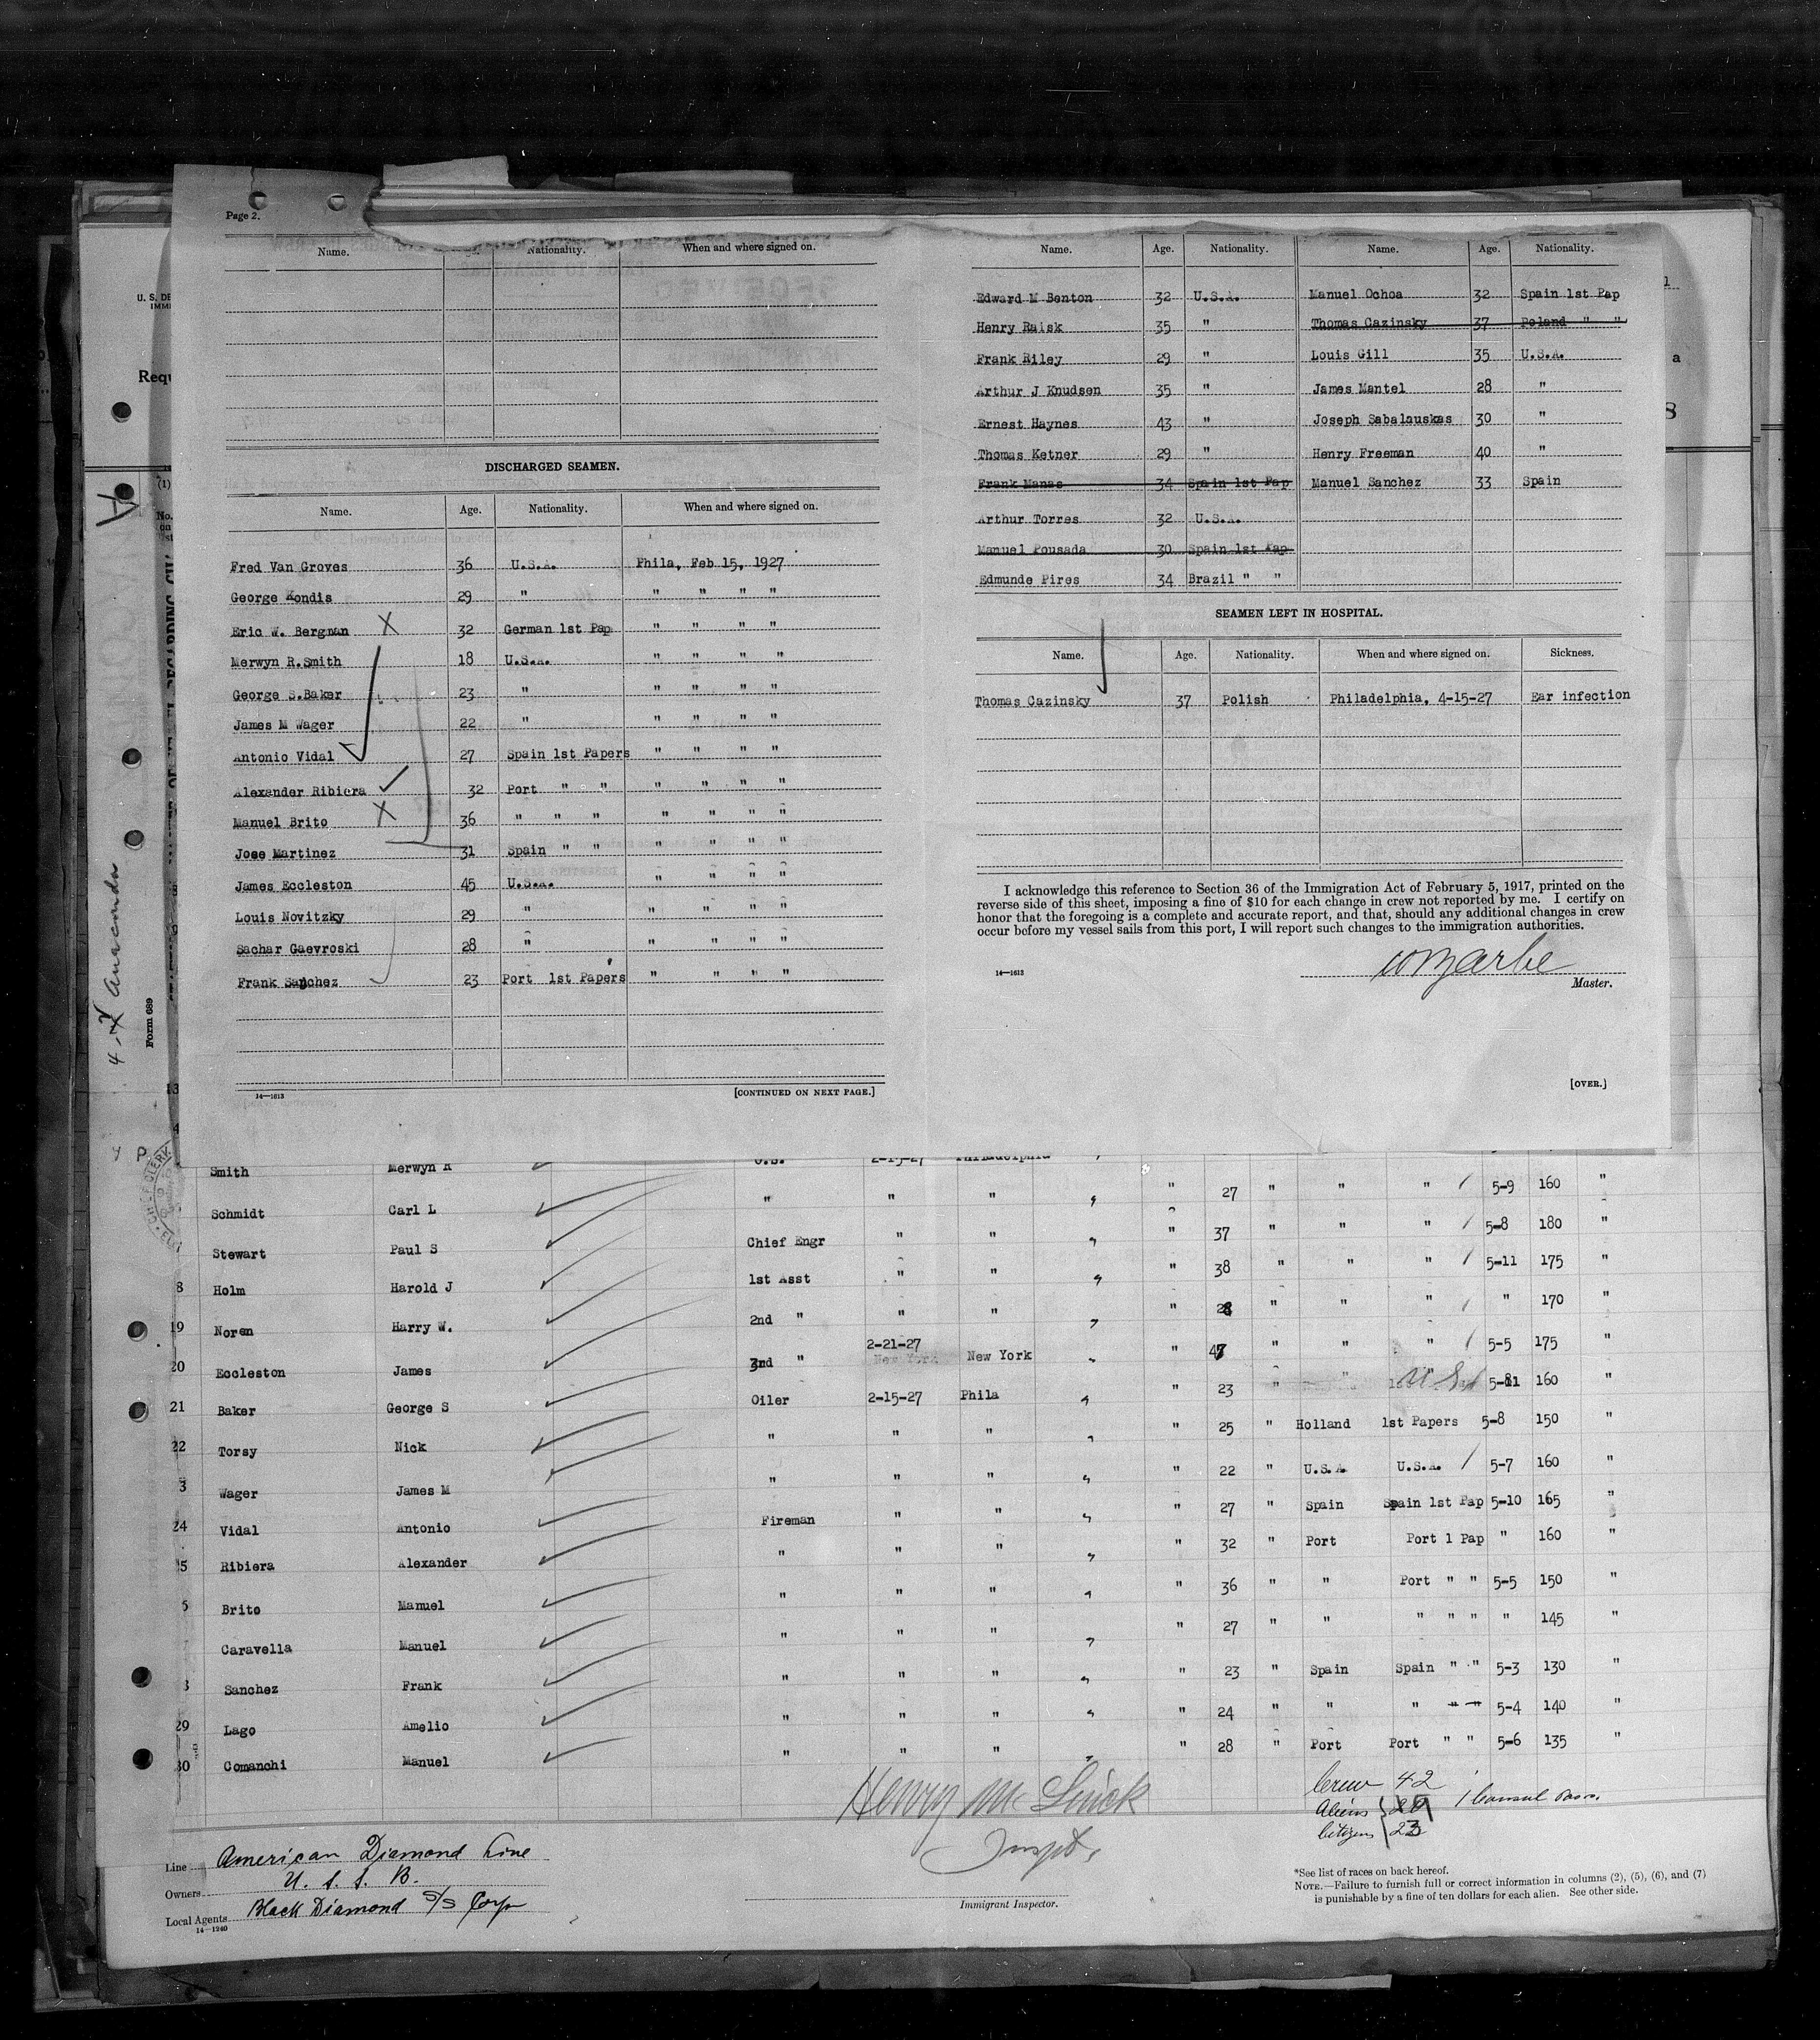 Page 2.
Name. Age. Nationality. When and where signed on.
DISCHARGED SEAMEN.
Name. Age. Nationality. When and where signed on.
Fred Van Groves 36 U.S.A. Phila, Feb 15, 1927
George Kondis 29 " " " " "
Eric W. Bergman X 32 German 1st Pap " " " "
Merwyn R.Smith 18 U.S.A. " " " "
George S.Baker 23 " " " " "
James M Wager 22 " " " " "
Antonio Vidal 27 Spain 1st Papers " " " "
Alexander Ribiera 32 Port " " " " " "
Manuel Brito X 36 " " " " " " "
Jose Martinez 31 Spain " " " " " "
James Eccleston 45 U.S.A. " " " "
Louis Novitzky 29 " " " " "
Sachar Gaevroski 28 " " " " "
Frank Sanchez 23 Port 1st Papers " " " "
14—1613 [CONTINUED ON NEXT PAGE.]
Name. Age. Nationality. Name. Age. Nationality.
Edward M Benton 32 U.S.A. Manuel Ochoa 32 Spain 1st Pap
Henry Raisk 35 " Thomas Cazinsky 37 Poland " "
Frank Riley 29 " Louis Gill 35 U.S.A.
Arthur J Knudsen 35 " James Mantel 28 "
Ernest Haynes 43 " Joseph Sabalauskas 30 "
Thomas Ketner 29 " Henry Freeman 40 "
Frank Manas 34 Spain 1st Pap Manuel Sanchez 33 Spain
Arthur Torres 32 U.S.A.
Manuel Pousada 30 Spain 1st Pap
Edmunde Pires 34 Brazil " "
SEAMEN LEFT IN HOSPITAL.
Name. Age. Nationality. When and where signed on. Sickness.
Thomas Cazinsky 37 Polish Philadelphia, 4-15-27 Ear infection
I acknowledge this reference to Section 36 of the Immigration Act of February 5, 1917, printed on the
reverse side of this sheet, imposing a fine of $10 for each change in crew not reported by me. I certify on
honor that the foregoing is a complete and accurate report, and that, should any additional changes in crew
occur before my vessel sails from this port, I will report such changes to the immigration authorities.
14—1613
Master.
[OVER.]
U. S. DE
IMM
Requ
(1)
No.
on
Form 689
Anaconda
Smith Merwyn R U.S. 2-15-27 Philadelphia
Schmidt Carl L " " " " 27 " " " 5-9 160 "
Stewart Paul S Chief Engr " " " 37 " " " 5-8 180 "
8 Holm Harold J 1st Asst " " " 38 " " " 5-11 175 "
19 Noren Harry W. 2nd " " " " 28 " " " " 170 "
20 Eccleston James 3rd " 2-21-27 New York " 47 " " " 5-5 175 "
21 Baker George S Oiler 2-15-27 Phila " 23 " " 5-11 160 "
22 Torsy Nick " " " " 25 " Holland 1st Papers 5-8 150 "
3 Wager James M " " " " 22 " U.S.A. U.S.A. 5-7 160 "
24 Vidal Antonio Fireman " " " 27 " Spain Spain 1st Pap 5-10 165 "
5 Ribiera Alexander " " " " 32 " Port Port 1 Pap " 160 "
5 Brito Manuel " " " " 36 " " Port " " 5-5 150 "
Caravella Manuel " " " " 27 " " " " " " 145 "
Sanchez Frank " " " " 23 " Spain Spain " " 5-3 130 "
29 Lago Amelio " " " " 24 " " " " " 5-4 140 "
30 Comanchi Manuel " " " " 28 " Port Port " " 5-6 135 "
Crew 42
Aliens
Citizens 23
Henry
Inspt.
Immigrant Inspector.
Line American Diamond Line
Owners U. S. S. B.
Local Agents Black Diamond S/S Corp
14—1240
*See list of races on back hereof.
NOTE.—Failure to furnish full or correct information in columns (2), (5), (6), and (7)
is punishable by a fine of ten dollars for each alien. See other side.